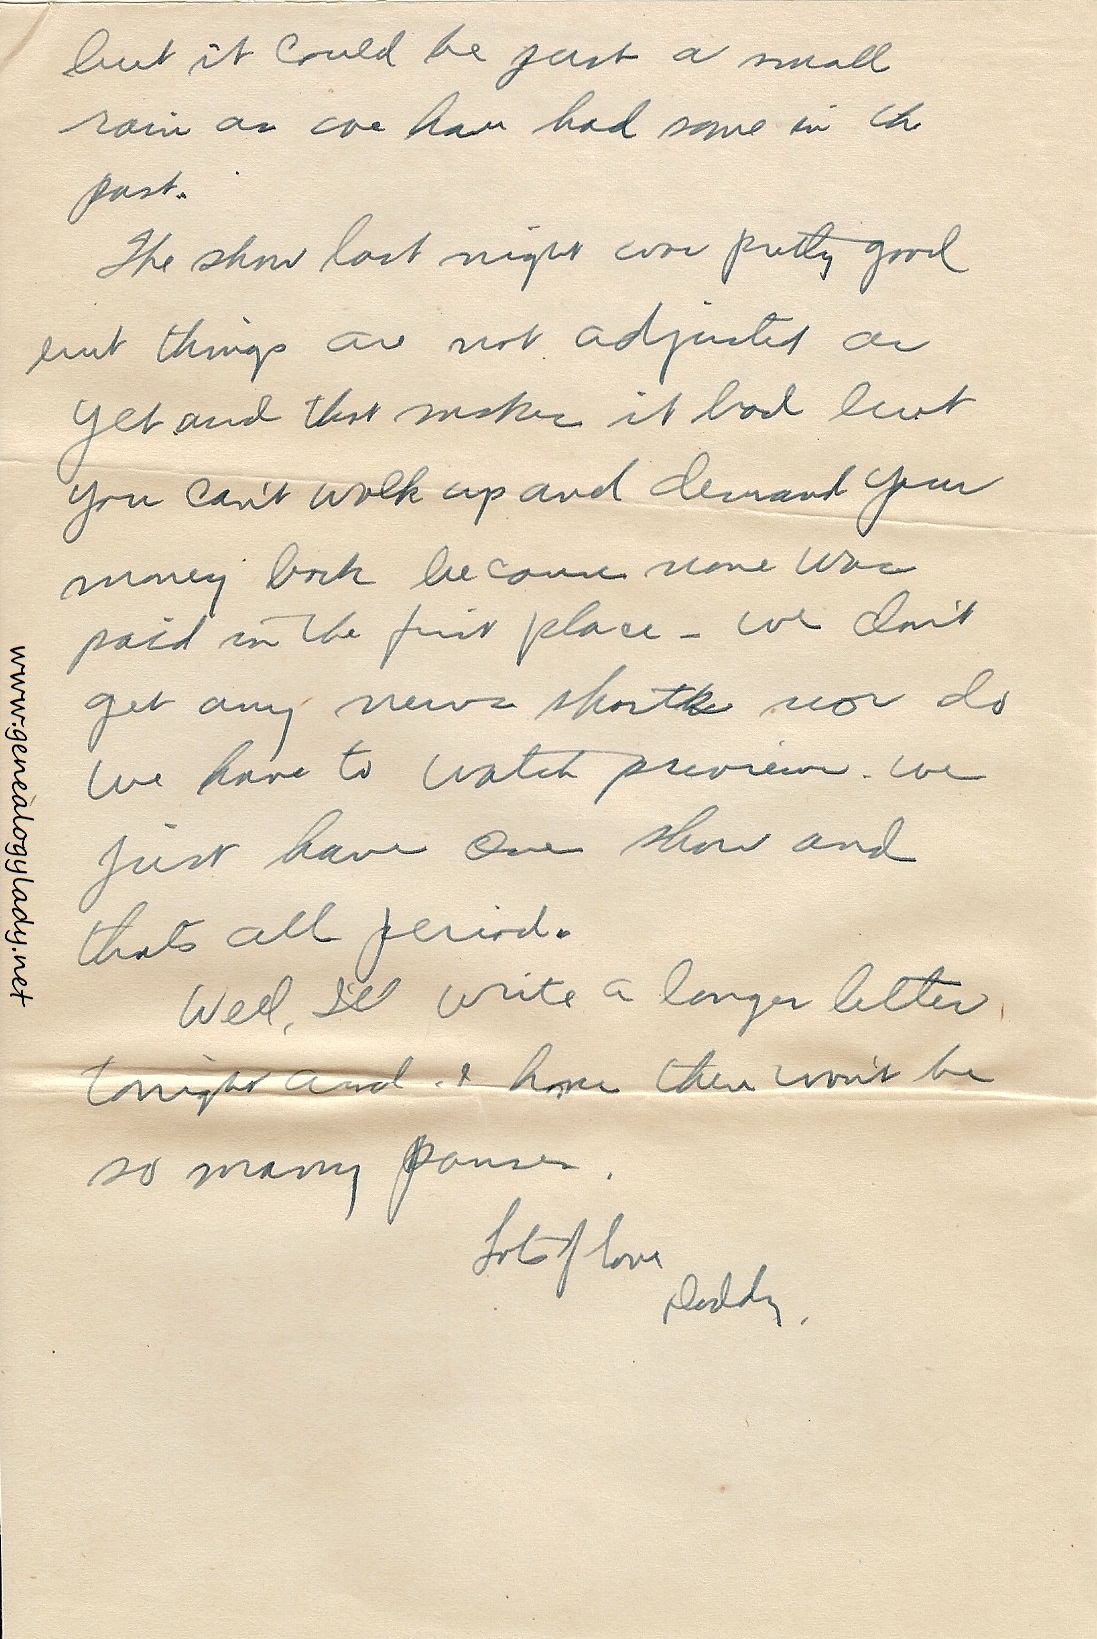 but it could be just a small
rain as we have had some in the
past.
The show last night was pretty good
but things are not adjusted as
yet and that makes it bad but
you can't walk up and demand your
money back because none was
paid in the first place - we don't
get any news shorts nor do
we have to watch previews. we
just have one show and
thats all period.
Well, I'll write a longer letter
tonight and I hope there won't be
so many pauses.
Lots of love
Daddy.
www.genealogylady.net